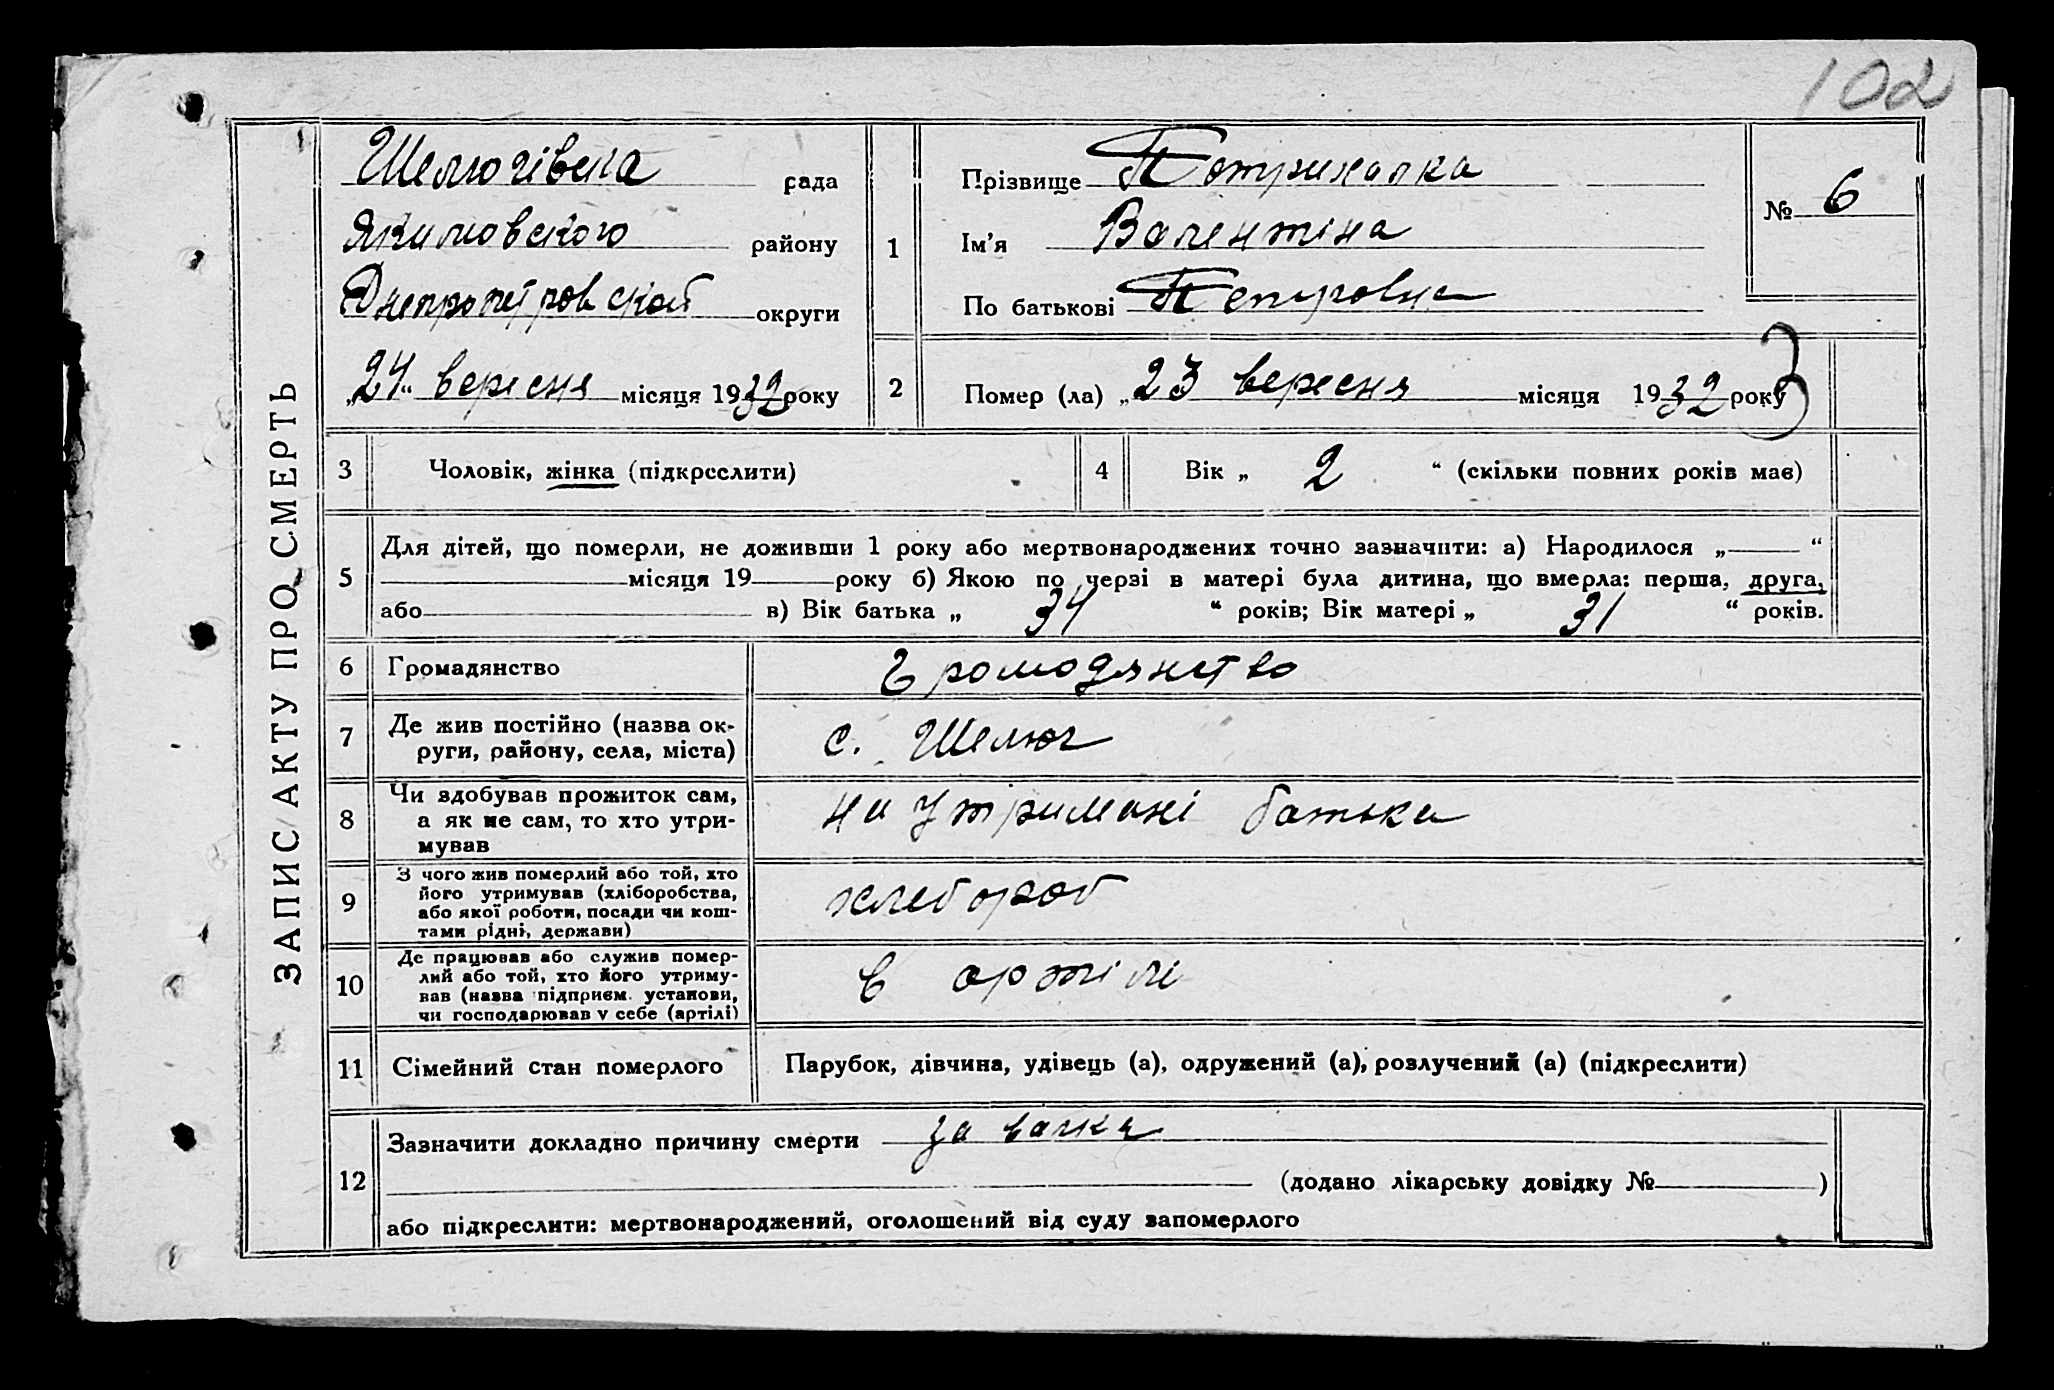 102
ЗАПИС АКТУ ПРО СМЕРТЬ
Шелюгівська рада
Якимовского району
Днепропетровской округи
„24“ вересня місяця 1932 року
1
Прізвище Потрихалка
Ім’я Валентіна
По батькові Петровна
№ 6
2
Помер (ла) „23 вересня місяця 1932 року
3
3 Чоловік, жінка (підкреслити)
4 Вік „ 2 “ (скільки повних років має)
5
Для дітей, що померли, не доживши 1 року або мертвонароджених точно зазначити: а) Народилося „ “
місяця 19 року б) Якою по черзі в матері була дитина, що вмерла: перша, друга,
або в) Вік батька „ 34 “ років; Вік матері „ 31 “ років.
6 Громадянство громодянство
7 Де жив постійно (назва ок-
руги, району, села, міста)
с. Шелюг
8 Чи здобував прожиток сам,
а як не сам, то хто утри-
мував
на утримані батька
9 З чого жив померлий або той, хто
його утримував (хліборобства,
або якої роботи, посади чи кош-
тами рідні, держави)
хлебороб
10 Де працював або служив помер-
лий або той, хто його утриму-
вав (назва підприєм. установи,
чи господарював у себе (артілі)
в артілі
11 Сімейний стан померлого Парубок, дівчина, удівець (а), одружений (а), розлучений (а) (підкреслити)
12
Зазначити докладно причину смерти
(додано лікарську довідку № )
або підкреслити: мертвонароджений, оголошений від суду запомерлого